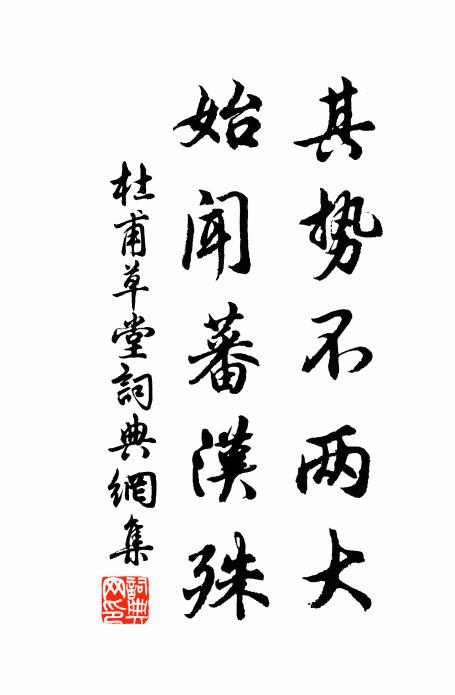 其势不两大
始闻蕃漢殊
杜甫草堂詞典網集
詞典网印